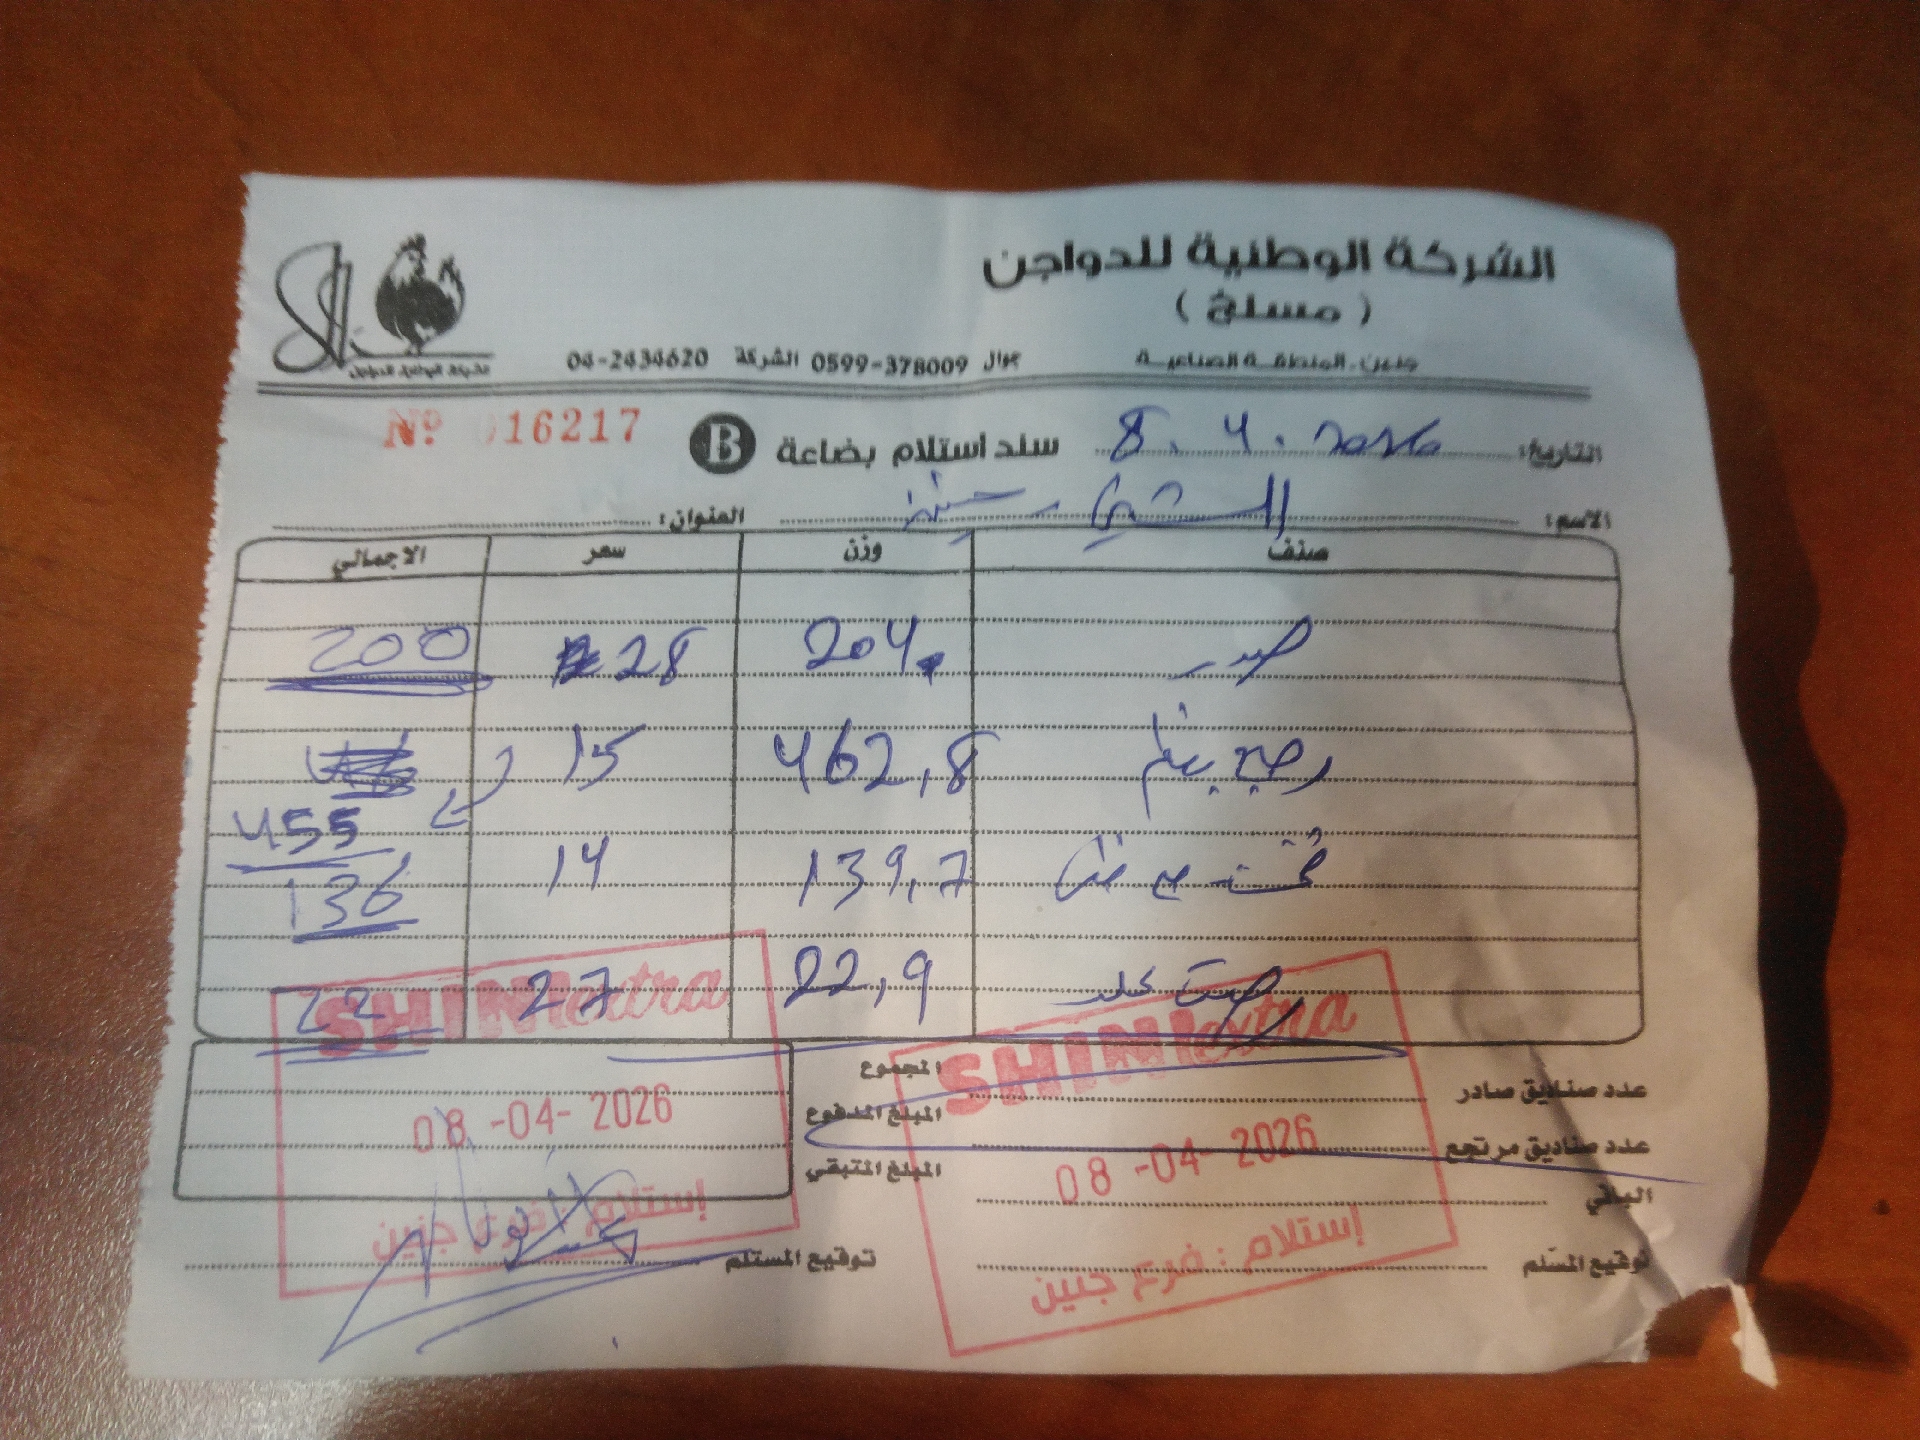 الشركة الوطنية للدواجن
( مسلخ )
جنين - المنطقة الصناعية جوال 0599-378009 الشركة 04-2434620
شركة الوطنية للدواجن
التاريخ: 8.4.2026 سند استلام بضاعة B Nº 016217
الاسم: الشني - جنين العنوان:
صنف وزن سعر الاجمالي
صدر 204 28 200
بعظم 462,8 15
455
139,7 14
136
22,9 27 22
SHINI extra
SHINI extra
المجموع
عدد صناديق صادر
المبلغ المدفوع
08-04-2026
عدد صناديق مرتجع
08-04-2026
المبلغ المتبقي
الباقي
إستلام : فرع جنين
إستلام : فرع جنين
توقيع المسلم
توقيع المستلم